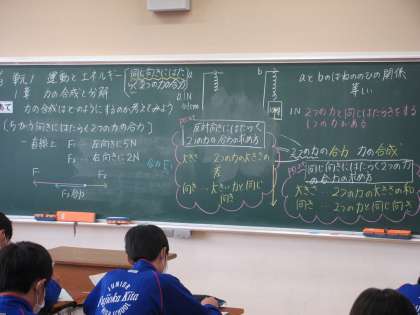 単元1 運動とエネルギー
1章 力の合成と分解
力の合成はどのようにするのか考えてみよう
同じ向きにはたらく
2つの力の合力
[ちがう向きにはたらく2つの力の合力]
一直線上 F₁…左向きに5N
F₂…右向きに2N
F₁
F₂
合力
a
1N
b
1N
aとbのばねののびの関係
等しい
2つの力と同じはたらきをする
1つの力がある
2つの力の合力 力の合成
point
反対向きにはたらく
2つの力の合力の求め方
大きさ…2つの力の大きさの
差
向き…大きい力と同じ
向き
point
同じ向きにはたらく2つの力
の合力の求め方
大きさ…2つの力の大きさの和
向き…2つの力と同じ向き
JUNIOR
Fujioka Kita
HIGH SCHOOL